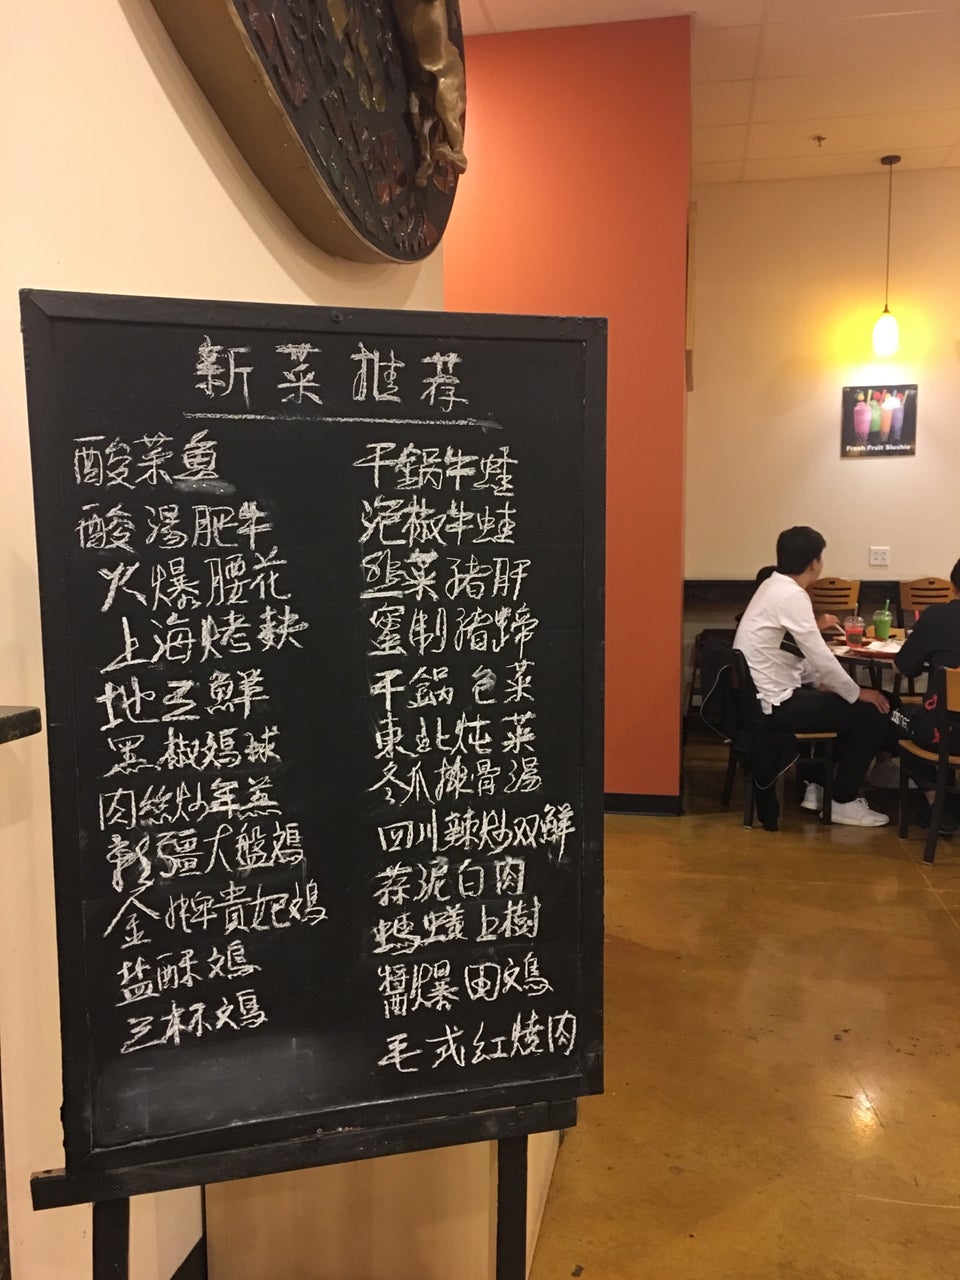 新菜推荐
酸菜鱼
酸湯肥牛
火爆腰花
上海烤麸
地三鮮
黑椒鷄球
肉絲炒年糕
新疆大盤鷄
金牌貴妃鷄
盐酥鷄
三杯鷄
干鍋牛蛙
泡椒牛蛙
韮菜豬肝
蜜制豬蹄
干鍋包菜
東北炖菜
冬瓜排骨湯
四川辣炒双鮮
蒜泥白肉
螞蟻上樹
醬爆田鷄
毛式红燒肉
Fresh Fruit Slushie